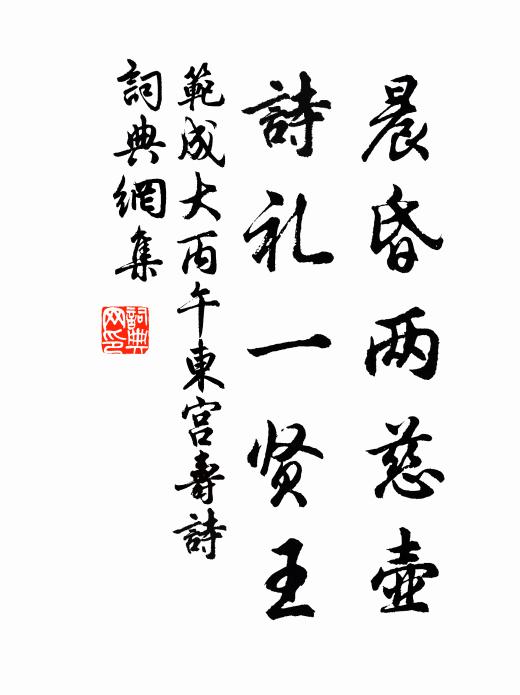 晨昏两慈壼
詩礼一贤王
範成大丙午東宫壽詩
詞典網集
詞典网印